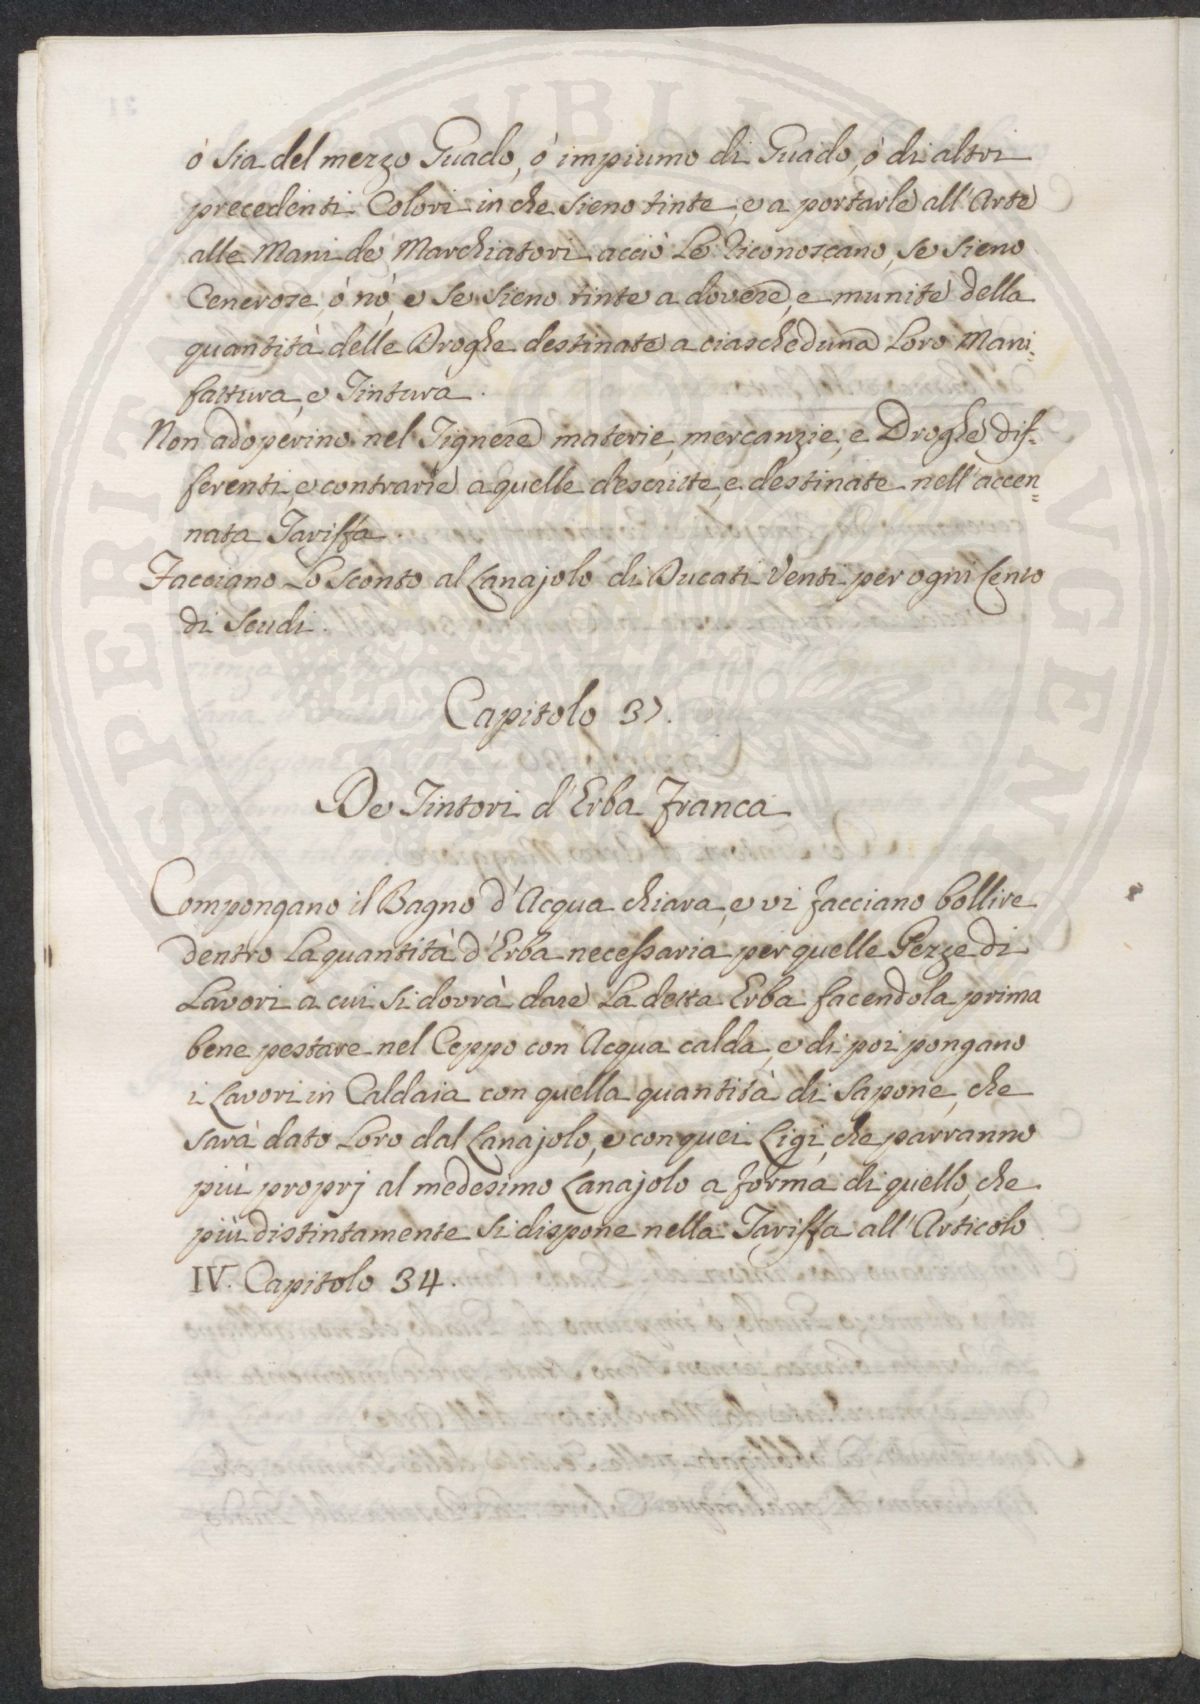 ó sia del mezzo Guado, ó impiumo di Guado, ó di altri
precedenti Colori in che sieno tinte, e a portarle all'Arte
alle Mani de' Marchiatori acciò le riconoscano, se sieno
Cenerose, ó nò, e se sieno tinte a dovere, e munite della
quantità delle Droghe destinate a ciascheduna loro Mani=
fattura, e Tintura.
Non adoperino nel Tignere materie, mercanzie, e Droghe dif=
ferenti, e contrarie a quelle descritte, e destinate nell'accen=
nata Tariffa.
Facciano lo sconto al Lanajolo di Ducati Venti per ogni Cento
di Scudi.
Capitolo 37.
De Tintori d'Erba Franca
Compongano il Bagno d'Acqua chiara, e vi facciano bollire
dentro la quantità d'Erba necessaria per quelle Pezze di
Lavori a cui si dovrà dare la detta Erba facendola prima
bene pestare nel Ceppo con Acqua calda, e di poi pongano
i Lavori in Caldaia con quella quantità di Sapone, che
sarà dato loro dal Lanajolo, e con quei Ligi, che parranno
più proprj al medesimo Lanajolo a forma di quello, che
più distintamente si dispone nella Tariffa all'Articolo
IV. Capitolo 34.